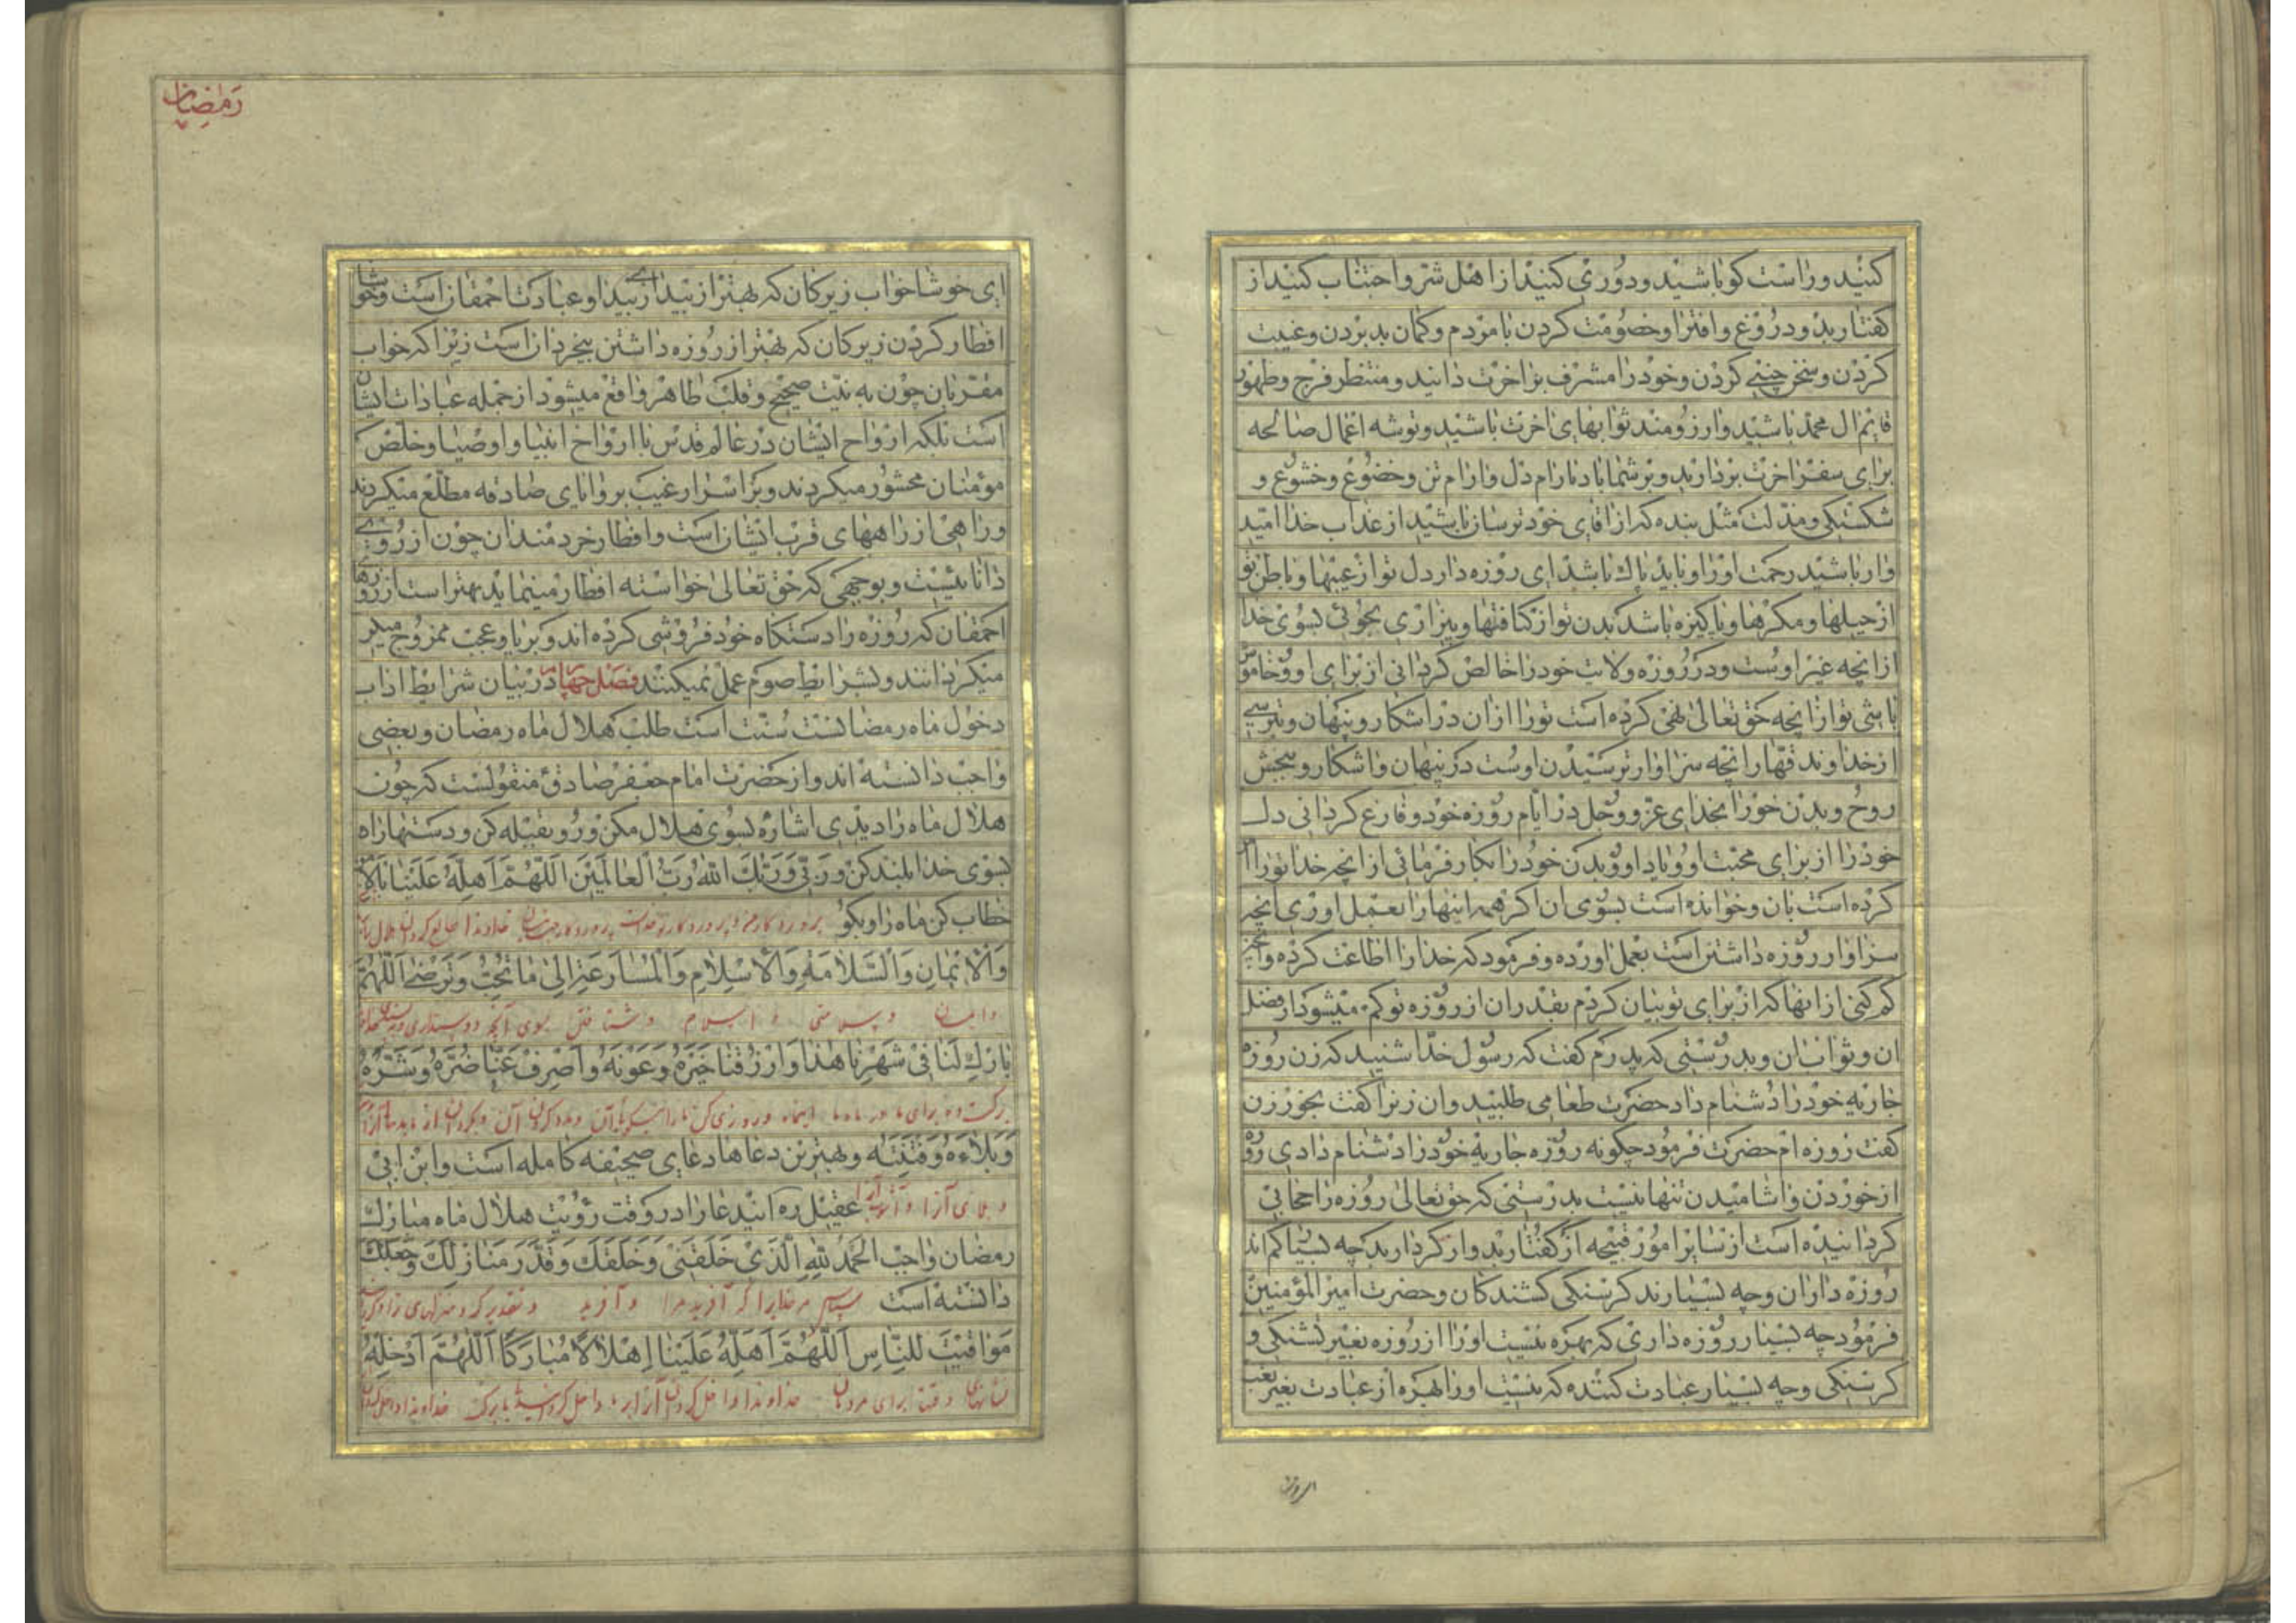 کنید و راست کو باشید و دوری کنید از اهل شر و اجتناب کنید از
کفتار بد و دروغ و افترا و خصومت کردن با مردم و کمان بد بردن و غیبت
کردن و سخن چینی کردن و خود را مشرف بر اخرت دانید و منتظر فرج و ظهور
قایم ال محمد باشید و ارزومند ثوابهای اخرت باشید و توشه اعمال صالحه
برای سفر اخرت بردارید و بر شما باد بارام دل و ارام تن و خضوع و خشوع و
شکستکی و مذلت مثل بنده که از اقای خود ترسان باشید از عذاب خدا امید
وار باشید رحمت اورا و باید پاك باشد ای روزه دار دل تو از عیبها و باطن تو
از حیلها و مکرها و پاکیزه باشد بدن تو از کثافتها و بیزاری بجوئی بسوی خدا
از انچه غیر اوست و در روزه ولایت خود را خالص کردانی از برای او و خاموش
باشی تو از انچه حق تعالی نهی کرده است تو را از ان در اشکار و پنهان و بترسی
از خداوند قهار انچه سزاوار ترسیدن اوست در پنهان و اشکار و ببخشی
روح و بدن خود را بخدای عز و وجل در ایام روزه خود و فارغ کردانی دل
خود را از برای محبت او و یاد او و بدن خود را بکار فرمائی از انچه خدا تو را امر
کرده است بان و خوانده است بسوی ان اکر همه اینها را بعمل اوری انچه
سزاوار روزه داشتن است بعمل اورده و فرمود که خدا را اطاعت کرده و انچه
کم کنی از انها که از برای تو بیان کردم بقدر ان از روزه تو کم میشود از فضل
ان و ثواب ان و بدرستی که پدرم کفت که رسول خدا شنید که زن روزه
جاریه خود را دشنام داد حضرت طعامی طلبید و ان زن را کفت بخور زن
کفت روزه ام حضرت فرمود چکونه روزه جاریه خود را دشنام دادی روزه
از خوردن و اشامیدن تنها نیست بدرستی که حق تعالی روزه را حجابی
کردانیده است از سایر امور قبیحه از کفتار بد و از کردار بد چه بسیار کم اند
روزه داران و چه بسیارند کرسنکی کشندکان و حضرت امیر المؤمنین
فرمود چه بسیار روزه داری که بهره نیست اورا از روزه بغیر تشنکی و
کرسنکی و چه بسیار عبادت کننده که نیست اورا بهره از عبادت بغیر تعب
رمضان
ای خوشا خواب زیرکان که بهتر از بیداری بیدا و عبادت احمقان است و خوشا
افطار کردن زیرکان که بهتر از روزه داشتن بیخردان است زیرا که خواب
مقربان چون به نیت صحیح و قلب طاهر واقع میشود از جمله عبادات ایشان
است بلکه ارواح ایشان در عالم قدس با ارواح انبیا و اوصیا و خلص
مؤمنان محشور میکردند و بر اسرار غیب بروایای صادقه مطلع میکردند
و راهی از راههای قرب ایشان است و افطار خردمندان چون از روی
دانائیست و بوجهی که حق تعالی خواسته افطار مینمایند بهتر است از روزهای
احمقان که روزه را دستکاه خود فروشی کرده اند و بریا و عجب ممزوج
میکردانند و بشرایط صوم عمل نمیکنند فصل چهارم در بیان شرایط اداب
دخول ماه رمضانست سنت است طلب هلال ماه رمضان و بعضی
واجب دانسته اند و از حضرت امام جعفر صادق ع منقولست که چون
هلال ماه را دیدی اشاره بسوی هلال مکن و رو بقبله کن و دستها را
بسوی خدا بلند کن وَرَبّی وَرَبُّكَ اللّٰهُ رَبُّ الْعالَمینَ اَللّهُمَّ اَهِلَّهُ عَلَیْنا بِالْاَمْنِ
خطاب کن ماه را و بکو پروردکار من و پروردکار تو خداست پروردکار جهانیان خداوندا
وَالْایمانِ وَالسَّلامَةِ وَالْاِسْلامِ وَالْمُسارَعَةِ اِلی ما تُحِبُّ وَتَرْضی اَللّهُمَّ
و ایمان و سلامتی و اسلام و شتافتن بسوی آنچه دوست داری
بارِكْ لَنا فی شَهْرِنا هٰذا وَارْزُقْنا خَیْرَهُ وَعَوْنَهُ وَاصْرِفْ عَنّا ضُرَّهُ وَشَرَّهُ
برکت ده برای ما در ماه ما اینماه و روزی کن ما را
وَبَلاءَهُ وَفِتْنَتَهُ و بهترین دعاها دعای صحیفه کامله است و ابن ابی
و بلای آنرا عقیل ره ایندعا را در وقت رؤیت هلال ماه مبارك
رمضان واجب اَلْحَمْدُ لِلّهِ الَّذی خَلَقَنی وَخَلَقَكَ وَقَدَّرَ مَنازِلَكَ وَجَعَلَكَ
دانسته است سپاس مر خدایرا که آفرید مرا و آفرید
مَواقیتَ لِلنّاسِ اَللّهُمَّ اَهِلَّهُ عَلَیْنا اِهْلالاً مُبارَکًا اَللّهُمَّ اَدْخِلْهُ
برای مردمان خداوندا